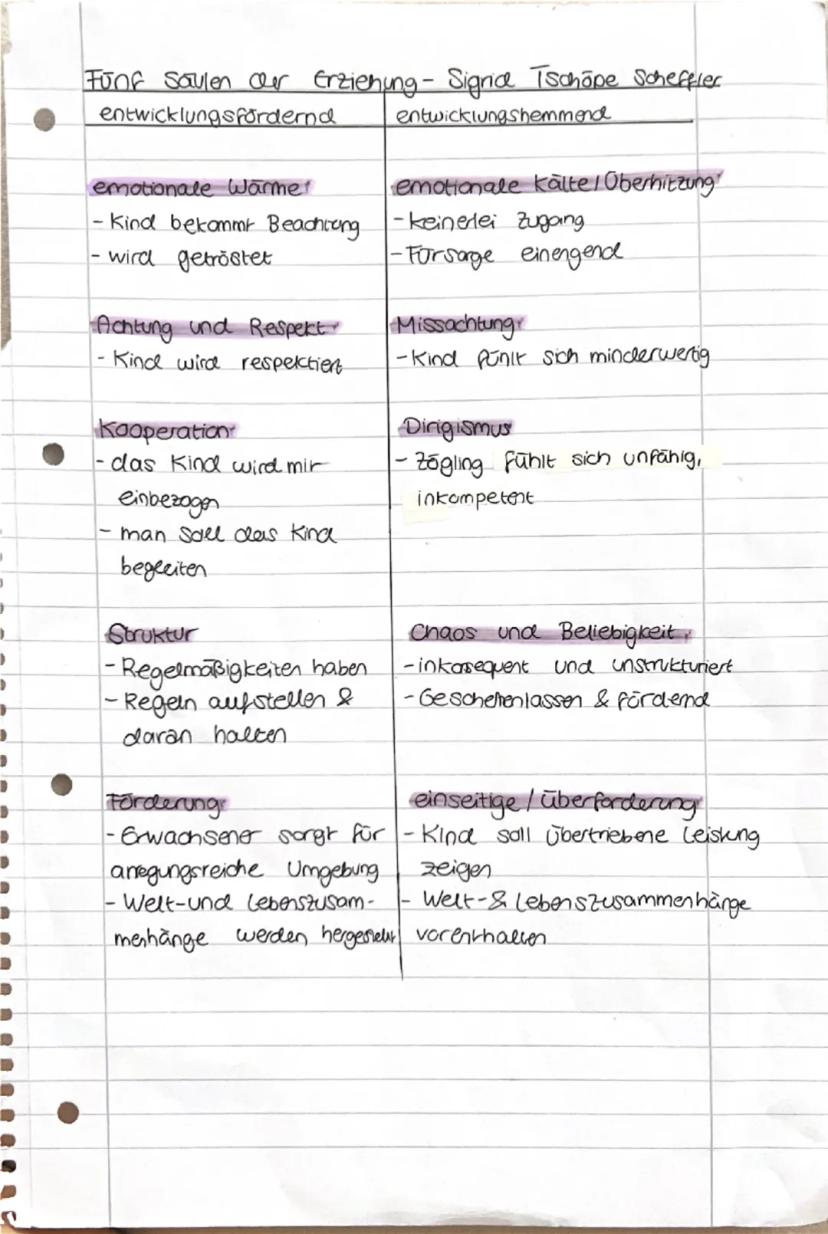 Fünf Säulen der Erziehung - Sigrid Tschöpe Scheffler
entwicklungsfördernd
emotionale Wärme
- Kind bekommt Beachtung
- wird getröstet
Achtung und Respekt
- Kind wird respektiert
Kooperation
- das Kind wird mit
einbezogen
- man soll das Kind
begleiten
Struktur
- Regelmäßigkeiten haben
- Regeln aufstellen &
daran halten
Förderung
- Erwachsener sorgt für
anregungsreiche Umgebung
- Welt-und Lebenszusam-
menhänge werden hergestellt
entwicklungshemmend
emotionale Kälte/Überhitzung
- keinerlei Zugang
- Fürsorge einengend
Missachtung
- Kind fühlt sich minderwertig
Dirigismus
- Zögling fühlt sich unfähig,
inkompetent
Chaos und Beliebigkeit
- inkonsequent und unstrukturiert
- Geschehenlassen & fördernd
einseitige/Überforderung
- Kind soll übertriebene Leistung
zeigen
- Welt-& Lebenszusammenhänge
vorenthalten